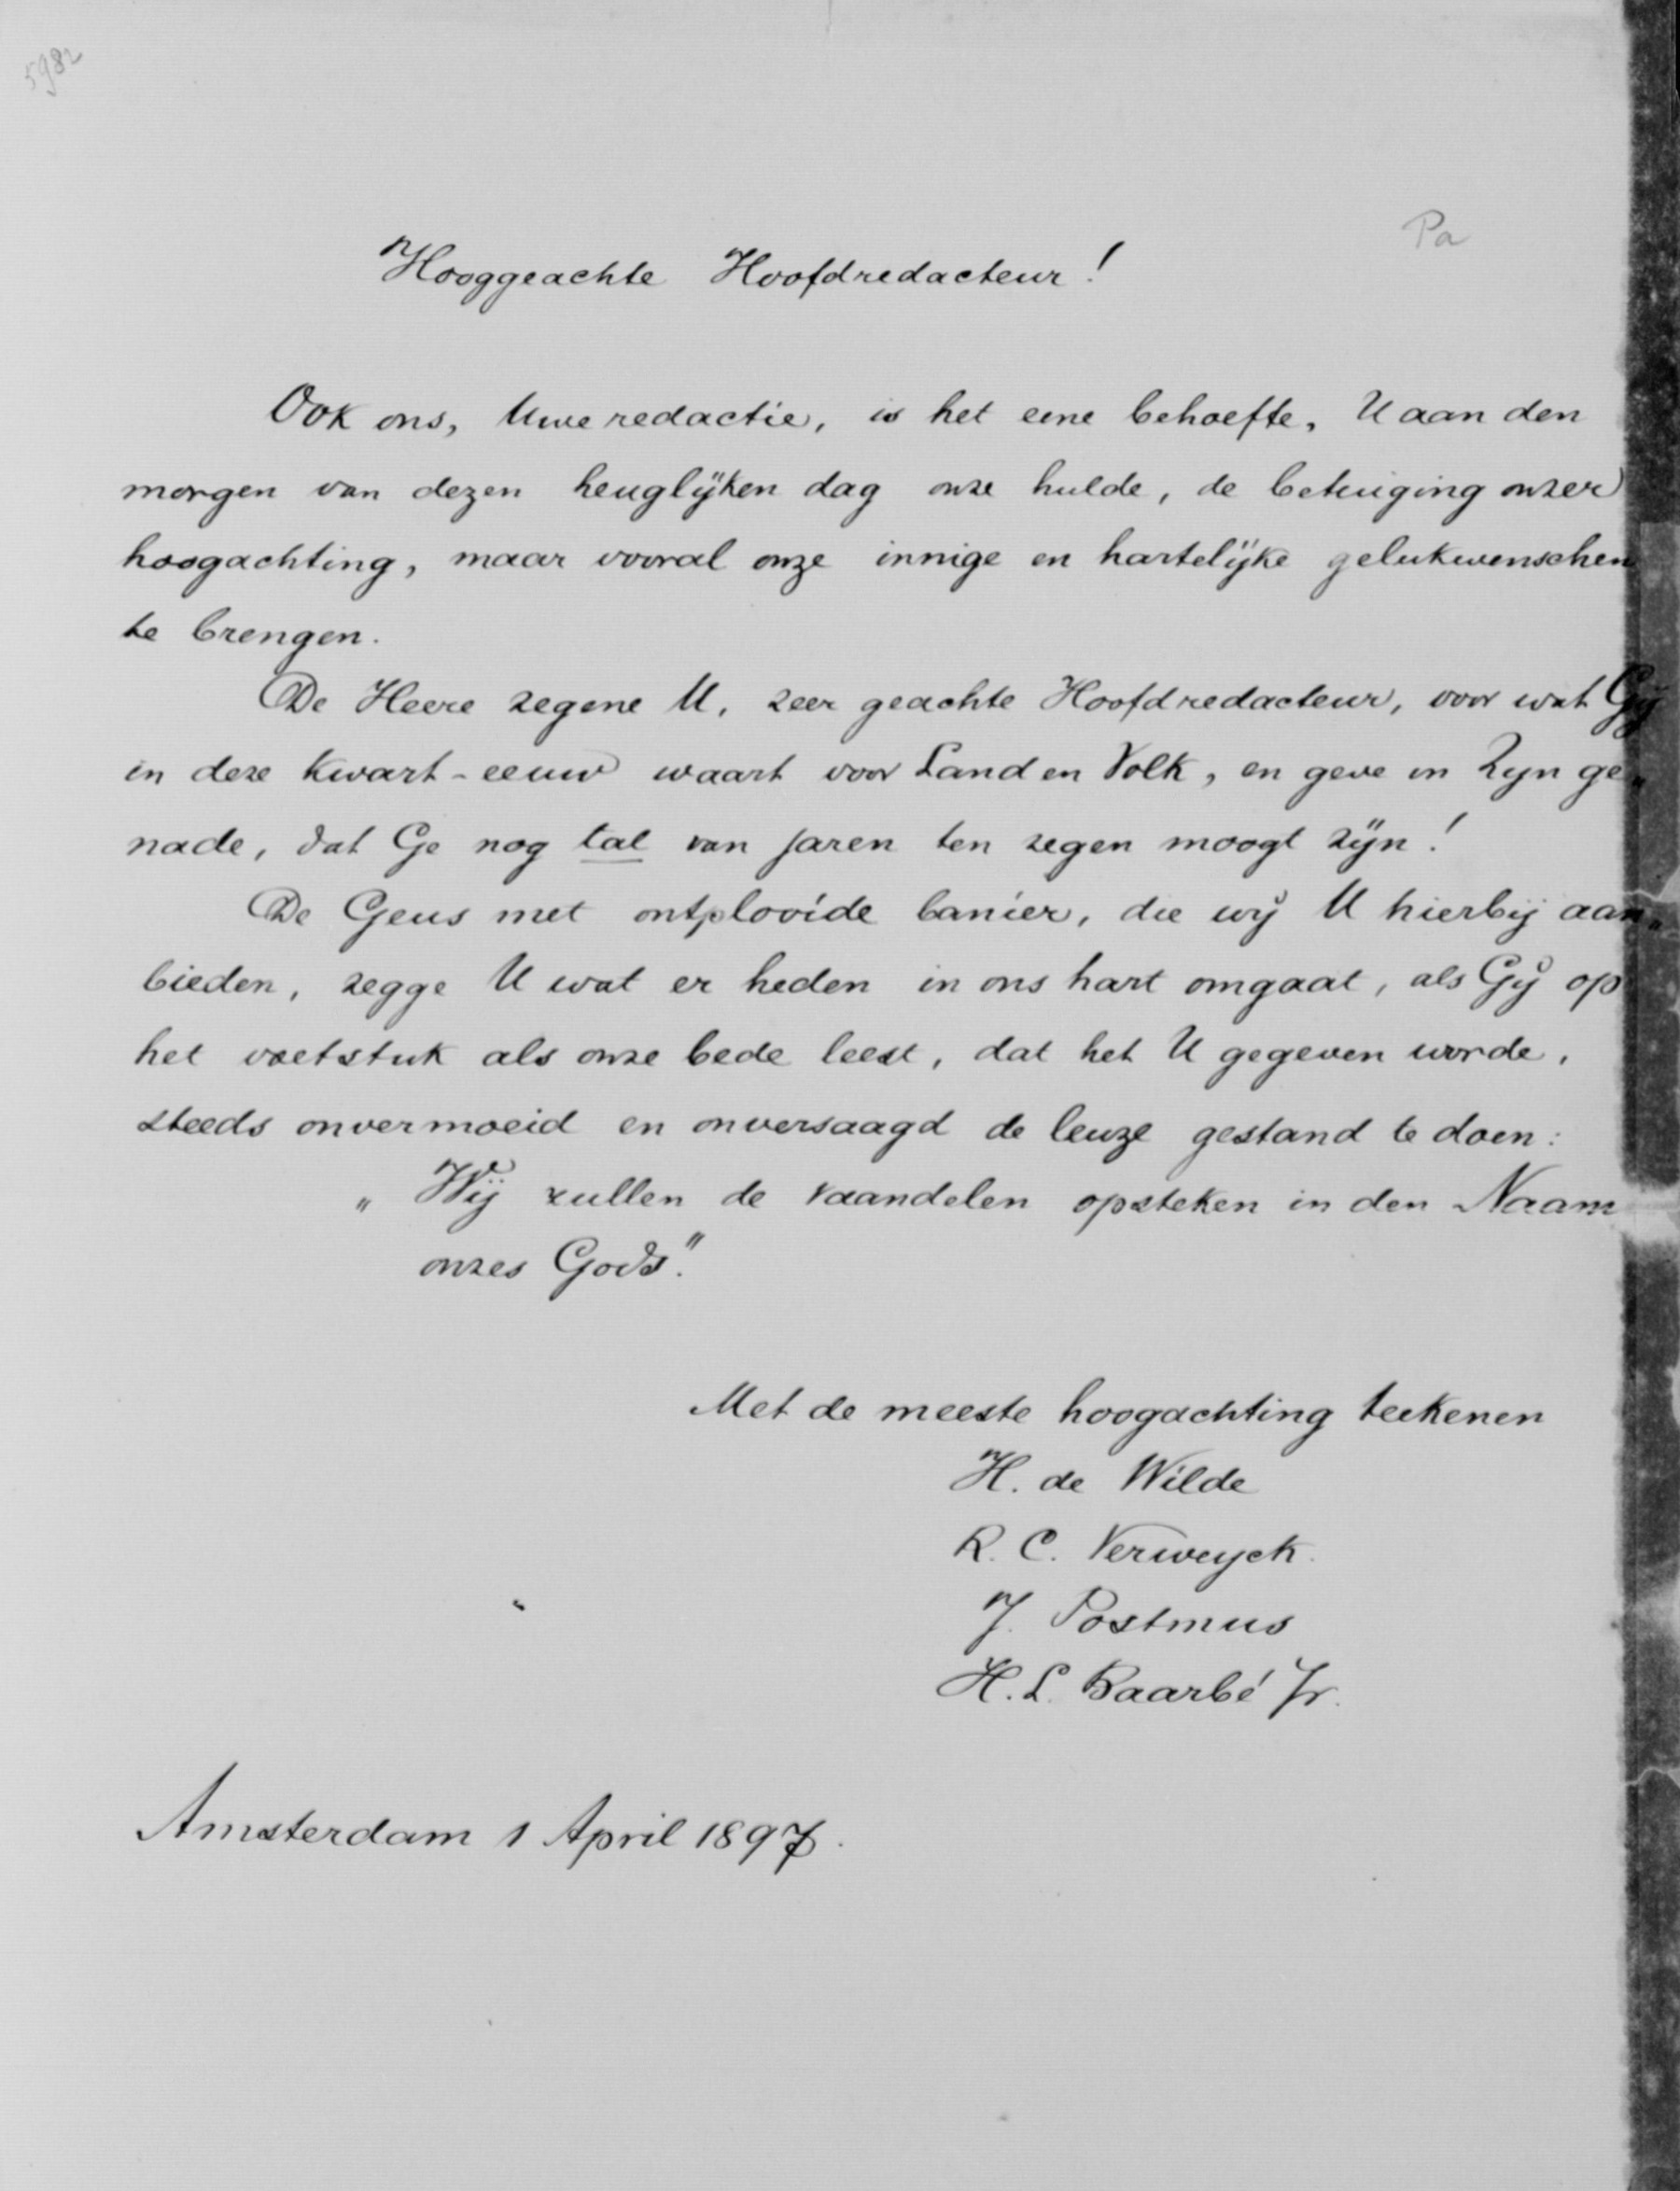 5982
Pa
Hooggeachte Hoofdredacteur!
Ook ons, Uwe redactie, is het eene behoefte, U aan den
morgen van dezen heuglijken dag onze hulde, de betuiging onzer
hoogachting, maar vooral onze innige en hartelijke gelukwenschen
te brengen.
De Heere zegene U, zeer geachte Hoofdredacteur, voor wat Gij
in deze kwart-eeuw waart voor Land en Volk, en geve in Zijn ge„
nade, dat Ge nog tal van jaren ten zegen moogt zijn!
De Geus met ontplooide banier, die wij U hierbij aan„
bieden, zegge U wat er heden in ons hart omgaat, als Gij op
het voetstuk als onze bede leest, dat het U gegeven worde,
steeds onvermoeid en onversaagd de leuze gestand te doen:
„Wij zullen de vaandelen opsteken in den Naam
onzes Gods".
Met de meeste hoogachting teekenen
H. de Wilde
R. C. Verweyck.
J. Postmus
H. L. Baarbé Jr.
Amsterdam 1 April 1897.